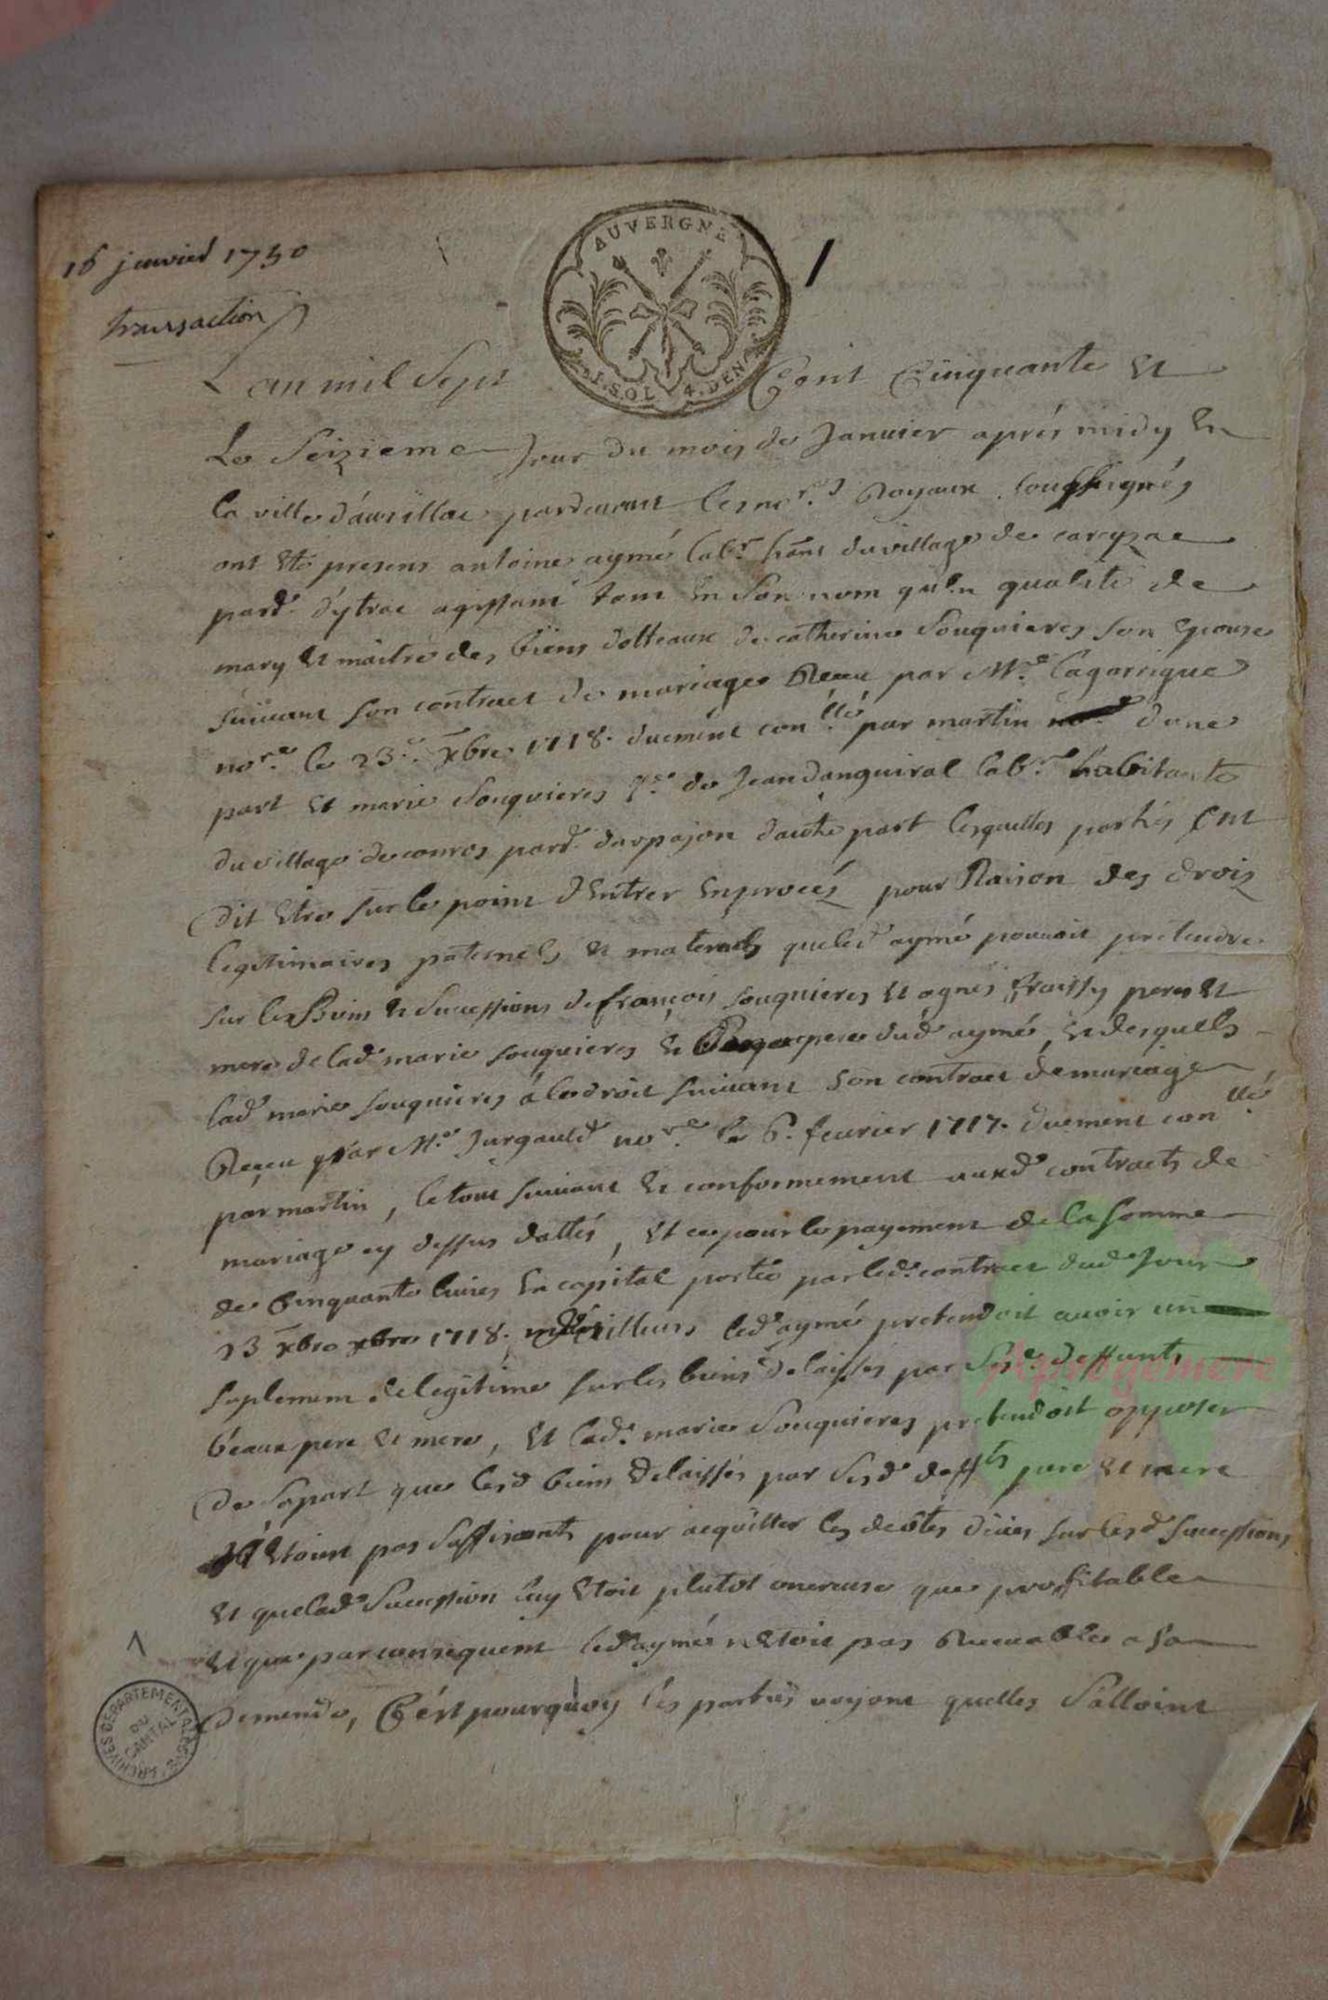 16 janvier 1750
transaction
AUVERGNE
1.SOL 4.DEN.
L an mil Sept Cent Cinquante Et
Le Seizieme Jour du mois de Janvier aprés midy En
la ville d'aurillac pardevant les no.rs Royaux soussignés
ont Eté presens antoine aymé lab.r ha͞nt du village de carsac
parr. d'ytrac agissant tant En Son nom qu'En qualité de
mary Et maitre des biens dotteaux de catherine Souquieres son Epouse
suivant son contract de mariage Receu par M.e Lagarrigue
no.re le 23.e xbre 1718. duement con.llé par martin d'une
part Et marie Souquieres de Jean Danguiral lab.r habitante
du village de conros parr. d'arpajon d'autre part lesquelles parties Ont
Dit Etre sur le point d'Entrer En procés pour Raison des drois
legitimaires paternels Et maternels que led. aymé pouvoit pretendre
sur les Biens Et Successions de françois souquieres Et agnes fraissy peres Et
mere de lad. marie souquieres Et Beauxpere dud. aymé, Et desquels
lad. marie souquieres á le droit suivant son contract de mariage
Reçeu par M.e Jurgauld no.re le 6. fevrier 1717. duement con.llé
par martin, le tout suivant Et conformement auxd. contracts de
mariage cy dessus dattés, Et ce pour le payement de la somme
de Cinquante livres En capital portée par led. contract dud. Jour
23 xbre xbre 1718. d'ailleurs led. aymé pretendoit avoir un
suplement de legitime sur les biens delaissés par Sesd. deffunts
béaux pere Et mere, Et lad. marie Souquieres pretendoit opposer
De sa part que lesd. biens Delaissés par Sesd. deff.ts pere Et mere
n'Etoint pas Suffisants pour acquitter les debtes düees sur lesd. successions
Et que lad. Succession luy Etoit plutot onereuse que proffitable
Et que par consequent led. aymé n'Etoit pas Recevable a sa
Demende, C'ést pourquoy lés parties voyant quelles S'alloint
1
ARCHIVES DEPARTEMENTALES
DU
CANTAL